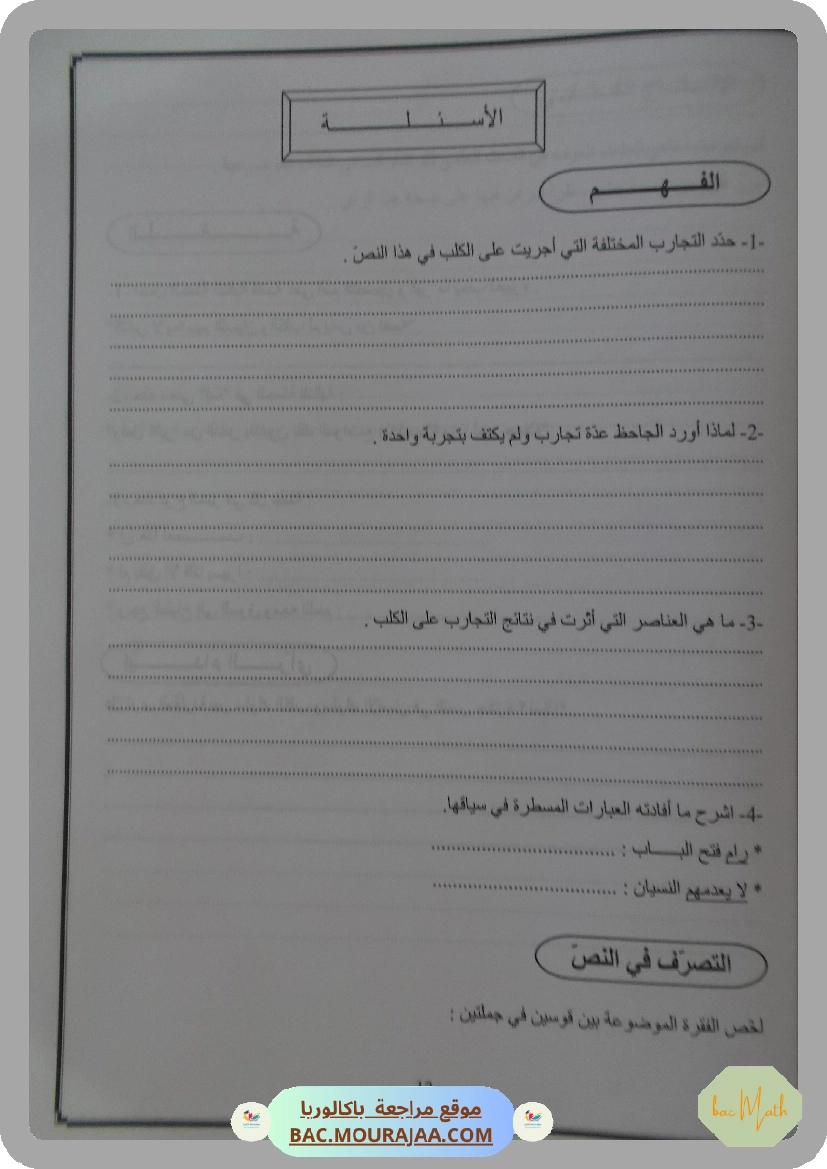 الأسئلة
الفهم
-1- حدّد التجارب المختلفة التي أجريت على الكلب في هذا النصّ .
-2- لماذا أورد الجاحظ عدّة تجارب ولم يكتف بتجربة واحدة .
-3- ما هي العناصر التي أثّرت في نتائج التجارب على الكلب .
-4- اشرح ما أفادته العبارات المسطرة في سياقها.
* رام فتح الباب : ..................................
* لا يعدمهم النسيان : ..................................
التصرّف في النصّ
لخّص الفقرة الموضوعة بين قوسين في جملتين :
موقع مراجعة باكالوريا
BAC.MOURAJAA.COM
bac Math